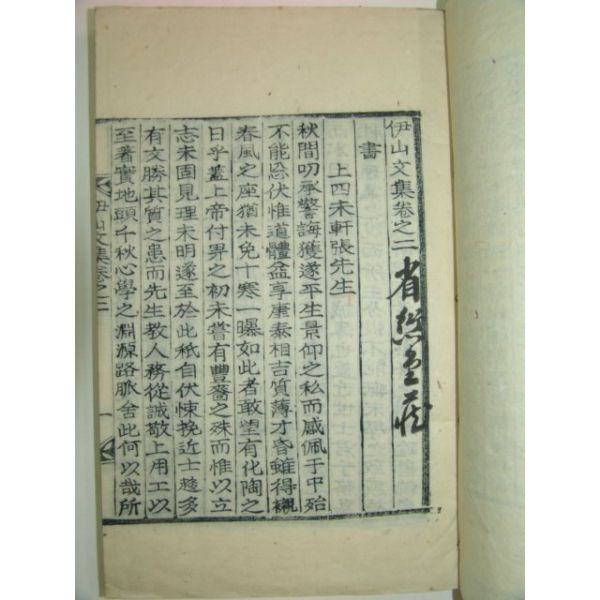 伊山文集卷之二
書
上四未軒張先生
秋間叨承警誨獲遂平生景仰之私而感佩于中殆
不能忘伏惟道體益享康泰相吉質薄才昏雖得襯
春風之座猶未免十寒一曝如此者敢望有化陶之
日乎蓋上帝付畀之初未嘗有豐嗇之殊而惟以立
志未固見理未明遂至於此秪自伏悚挽近士趍多
有文勝其質之患而先生教人務從誠敬上用工以
至著實地頭千秋心學之淵源路脈舍此何以哉所
伊山文集卷之二
一
省
堂藏